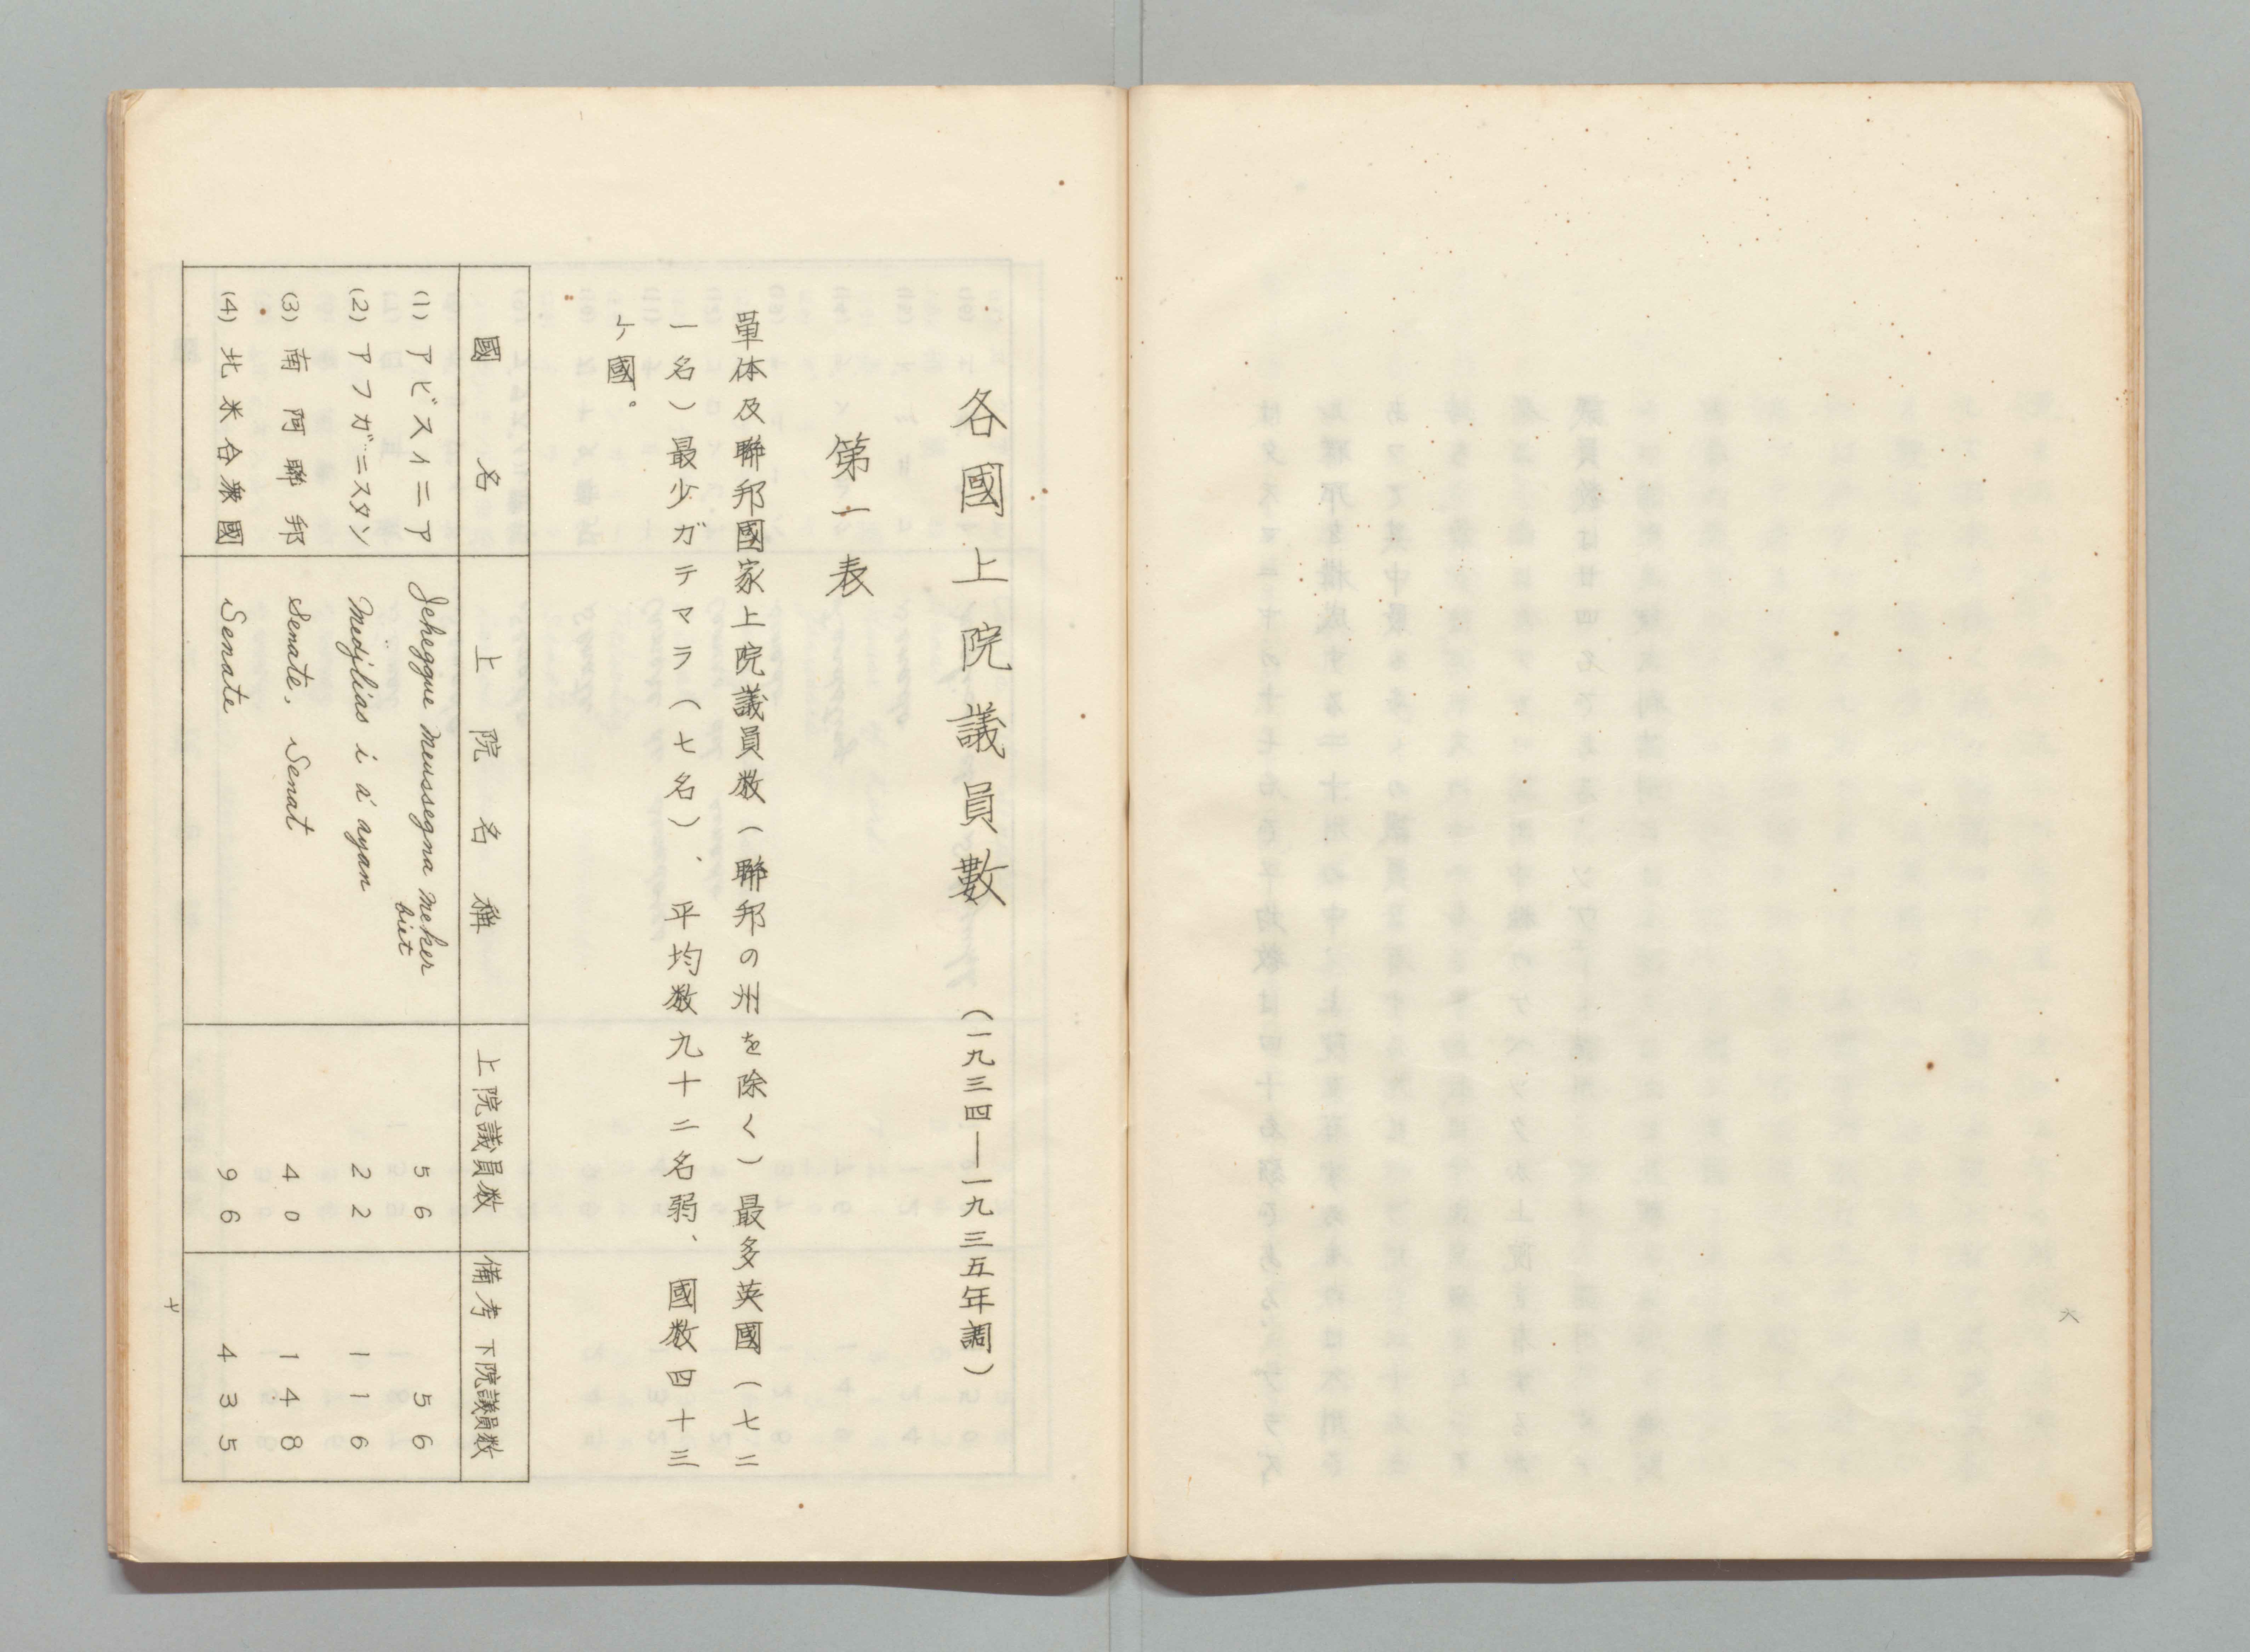 六
各國上院議員數 (一九三四—一九三五年調)
第一表
單体及聯邦國家上院議員数(聯邦の州を除く)最多英國(七二
一名)最少ガテマラ(七名)、平均数九十二名弱、國数四十三
ヶ國。
國名 上院名稱 上院議員数 備考 下院議員数
(1) アビスィニア Jeheggue meussegna meker biet 56 56
(2) アフガニスタン Medjlias i a' ayan 22 116
(3) 南阿聯邦 Senate, Senat 40 148
(4) 北米合衆國 Senate 96 435
七